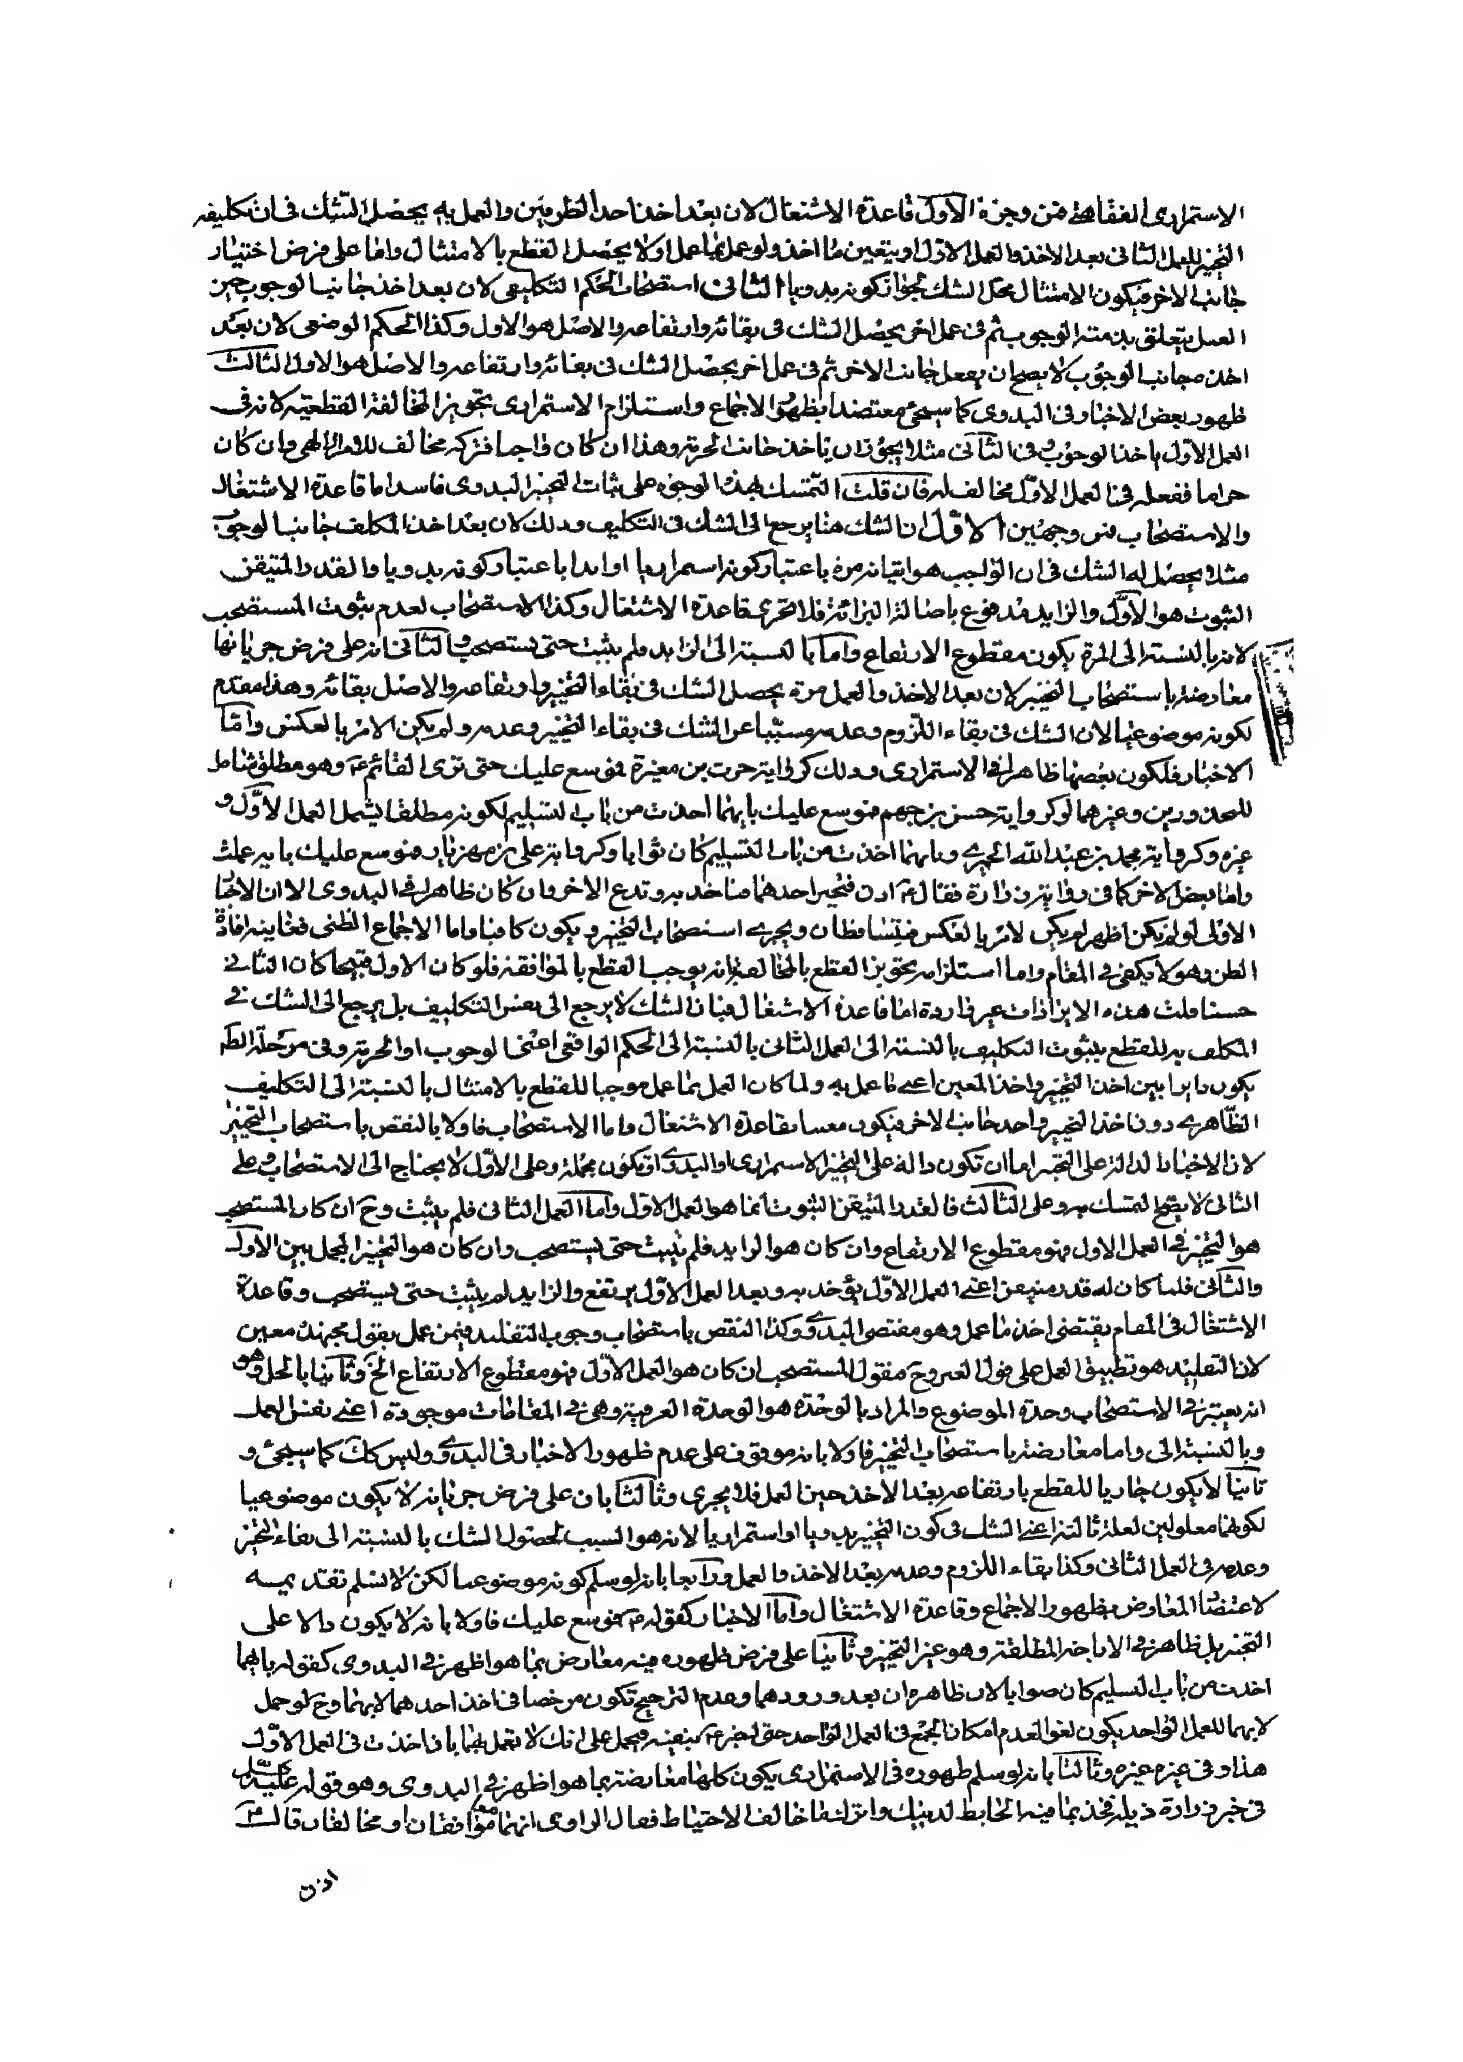 الاستمراری الفقاهة فمن وجوه الاول قاعدة الاشتغال لان بعد اخذ احد الطرفین والعمل به یحصل الشّك فی ان تکلیفه
التخیر للعمل الثانی بعد الاخذ والعمل الاول او یتعین ما اخذ ولو عمل بما عمل اولا یحصل القطع بالامتثال واما علی فرض اختیار
جانب الاخر فیکون الامتثال محل الشك لجواز کونه بدویا الثانی استصحاب الحکم التکلیفی لان بعد اخذ جانب الوجوب حین
العمل یتعلق بذمته الوجوب ثم فی عمل اخر یحصل الشك فی بقائه وارتفاعه والاصل هو الاول وکذا الحکم الوضعی لان بعد
اخذ مجانب الوجوب لا یصح ان یفعل جانب الاخر ثم فی عمل اخر یحصل الشك فی بقائه وارتفاعه والاصل هو الاول الثالث
ظهور بعض الاخبار فی البدوی کما سیجئ معتضدا بظهور الاجماع واستلزام الاستمراری تجویز المخالفة القطعیة لانه فی
العمل الاول یاخذ الوجوب وفی الثانی مثلا یجوز ان یاخذ جانب الحرمة وهذا ان کان واجبا فترکه مخالف للامر الالهی وان کان
حراما ففعله فی العمل الاول مخالف له فان قلت التمسك بهذه الوجوه علی اثبات التخییر البدوی فاسد اما قاعدة الاشتغال
والاستصحاب فمن وجهین الاوّل ان الشك هنا یرجع الی الشك فی التکلیف وذلك لان بعد اخذ المکلف جانب الوجوب
مثلا یحصل له الشك فی ان الواجب هو اتیانه مرة باعتبار کونه استمراریا او ابدا باعتبار کونه بدویا والقدر المتیقن
الثبوت هو الاول والزاید مدفوع باصالة البرائة فلا تجری قاعدة الاشتغال وکذا الاستصحاب لعدم ثبوت المستصحب
لانه بالنسبة الی المرة یکون مقطوع الارتفاع واما بالنسبة الی الزاید فلم یثبت حتی یستصحب والثانی انه علی فرض جریانها
معارضة باستصحاب التخییر لان بعد الاخذ والعمل مرة یحصل الشك فی بقاء التخییر وارتفاعه والاصل بقائه وهذا مقدم
لکونه موضوعیا لان الشك فی بقاء اللزوم وعدمه مسبّبا عن الشك فی بقاء التخییر وعدمه ولم یکن الامر بالعکس وامّا
الاخبار فلکون بعضها ظاهرا فی الاستمراری وذلك کروایة حرث بن مغیرة فموسع علیك حتی تری القائم ع وهو مطلق شامل
للمحذورین وغیرهما او کروایة حسن بن جهم فموسع علیك بایهما اخذت من باب التسلیم لکونه مطلقا یشمل العمل الاوّل و
غیره وکروایة محمد بن عبد الله الحمیری وبایهما اخذت من باب التسلیم کان صوابا وکروایة علی بن مهزیار فموسع علیك بایه عملت
واما بعض الاخر کما فی روایة زرارة فقال ع اذن فتخیر احدهما فتاخذ به وتدع الاخر وان کان ظاهرا فی البدوی الا ان الاخبار
الاولی لو لم یکن اظهر لم یکن الامر بالعکس فیتساقطان ویجری استصحاب التخییر ویکون کافیا واما الاجماع الظنی فغایته افادة
الظن وهو لا یکفی فی المقام واما استلزامه تجویز القطع بالمخالفة فانه یوجب القطع بالموافقة فلو کان الاول قبیحا کان الثانی
حسنا قلت هذه الایرادات غیر واردة اما قاعدة الاشتغال فبان الشك لا یرجع الی نفس التکلیف بل یرجع الی الشك فی
المکلف به للقطع بثبوت التکلیف بالنسبة الی العمل الثانی بالنسبة الی الحکم الواقعی اعنی الوجوب او الحرمة وفی مرحلة الظه
یکون دایرا بین اخذ التخییر واخذ المعین اعنی ما عمل به ولما کان العمل بما عمل موجبا للقطع بالامتثال بالنسبة الی التکلیف
الظاهری دون اخذ التخییر واخذ جانب الاخر فیکون قاعدة الاشتغال واما الاستصحاب فاولا بالنقض باستصحاب التخییر
لان الاخبار الدالة علی التخییر اما ان تکون دالة علی التخییر الاستمراری او البدوی او تکون مجملة وعلی الاول لا یحتاج الی الاستصحاب وعلی
الثانی لا یصح التمسك به وعلی الثالث فالقدر المتیقن الثبوت انما هو العمل الاول واما العمل الثانی فلم یثبت وح ان کان المستصحب
هو التخییر فی العمل الاول فهو مقطوع الارتفاع وان کان هو الزاید فلم یثبت حتی یستصحب وان کان هو التخییر المجمل بین الاول
والثانی فلما کان له قدر متیقن اعنی العمل الاوّل یؤخذ به وبعد العمل الاوّل یرتفع والزاید لم یثبت حتی یستصحب وقاعدة
الاشتغال فی المقام یقتضی اخذ ما عمل وهو مقتضی البدوی وکذا النقض باستصحاب وجوب التقلید فیمن عمل بقول مجتهد معین
لان التقلید هو تطبیق العمل علی قول الغیر وح فقول المستصحب ان کان هو العمل الاوّل فهو مقطوع الارتفاع الخ وثانیا بالحل وهو
انه یعتبر فی الاستصحاب وحدة الموضوع والمراد بالوحدة هو الوحدة العرفیة وهی فی المقامات موجودة اعنی نفس العمل
وبالنسبة الی واما معارضة باستصحاب التخییر فاولا بانه موقوف علی عدم ظهور الاخبار فی البدوی ولیس کك کما سیجئ و
ثانیا لا یکون جاریا للقطع بارتفاعه بعد الاخذ حین العمل فلا یجری وثالثا بان علی فرض جریانه لا یکون موضوعیا
لکونهما معلولین لعلة ثالثة اعنی الشك فی کون التخییر بدویا او استمراریا لانه هو السبب لحصول الشك بالنسبة الی بقاء التخییر
وعدمه فی العمل الثانی وکذا بقاء اللزوم وعدمه بعد الاخذ والعمل ورابعا بانه لو سلم کونه موضوعیا لکن لا نسلم تقدیمه
لاعتضاد المعارض بظهور الاجماع وقاعدة الاشتغال واما الاخبار کقوله ع فموسع علیك فاولا بانه لا یکون دالا علی
التخییر بل ظاهر فی الاباحة المطلقة وهو غیر التخییر وثانیا علی فرض ظهوره فیه معارض بما هو اظهر فی البدوی کقوله بایهما
اخذت من باب التسلیم کان صوابا لان ظاهره ان بعد ورودهما وعدم الترجیح تکون مرخصا فی اخذ احدهما لا بهما وح لو حمل
لا بهما للعمل الواحد یکون لغو العدم امکان الجمع فی العمل الواحد حتی یخبر ع بنفیه فیحمل علی انك لا تعمل بهما بان اخذت فی العمل الاوّل
هذا وفی غیره غیره وثالثا بانه لو سلم ظهوره فی الاستمراری یکون کلها معارضة بما هو اظهر فی البدوی وهو قوله علیه السّلم
فی خبر زرارة ذیله فخذ بما فیه الحایط لدینك واترك ما خالف الاحتیاط فقال الراوی انهما معا موافقان او مخالفان قال ع
اذن